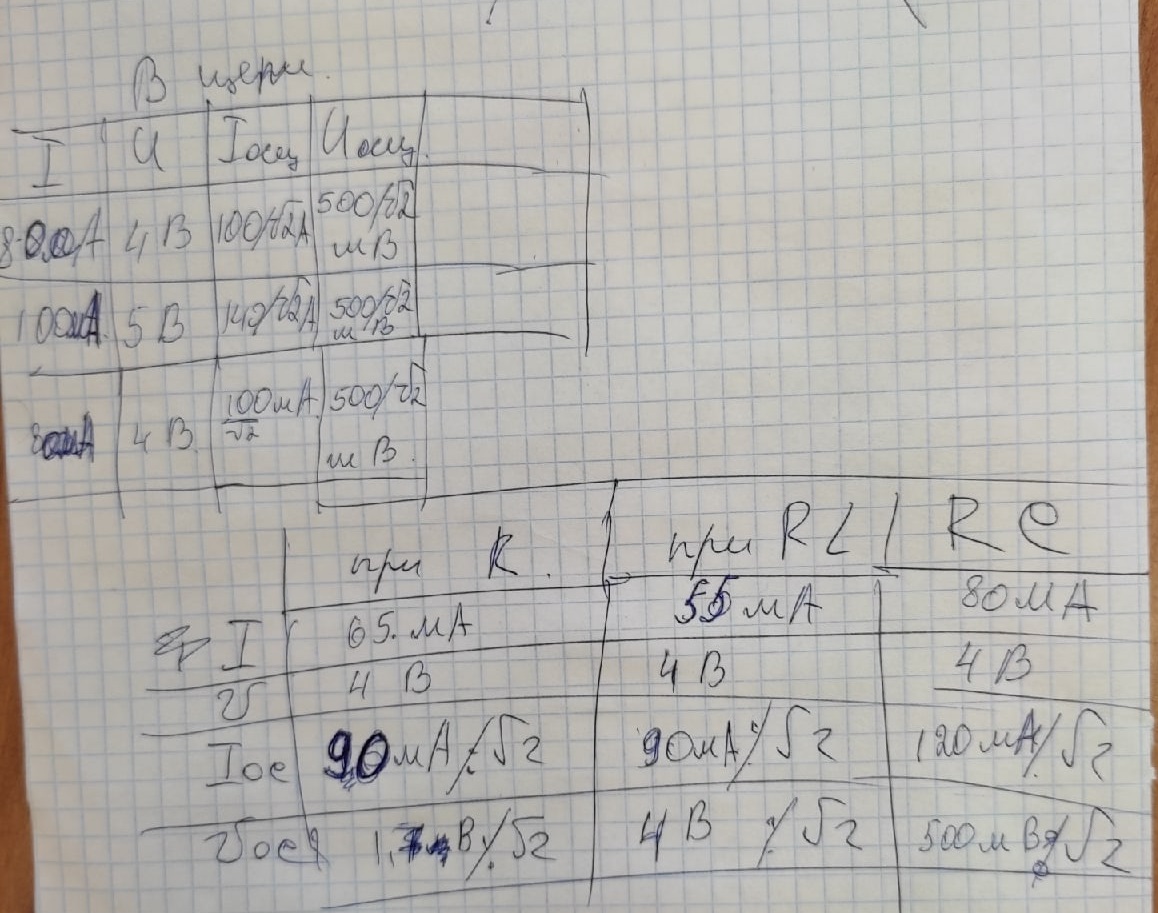 В цепи.
I U Iосц Uосц.
4 В 100/√2А 500/√2 мВ
100мА. 5 В 140/√2А 500/√2 мВ
80мА 4 В 100мА/√2 500/√2 мВ.
при R. при RL RC
I 65.мА 55 мА 80мА
U 4 В 4 В 4 В
Iос 90мА/√2 90мА/√2 120мА/√2
4 В /√2 500мВ/√2